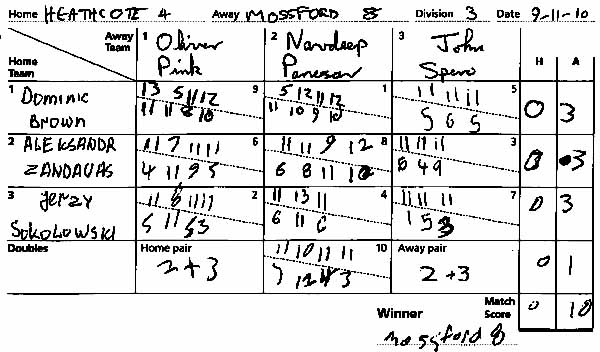 Home HEATHCOTE 4 Away MOSSFORD 8 Division 3 Date 9-11-10
Away Team 1 Oliver Pink 2 Navdeep Panesar 3 John Spero H A
Home Team
1 DOMINIC BROWN 9 1 5 0 3
13 5 11 12 5 12 11 12 11 11 11
11 11 8 10 11 10 9 10 5 6 5
2 ALEKSANDR ZANDAVAS 6 8 3 0 3
11 7 11 11 11 11 9 12 11 11 11
4 11 9 5 6 8 11 10 6 4 9
3 JERZY SOKOLOWSKI 2 4 7 0 3
11 8 11 11 11 13 11 11 11 11
5 11 5 3 6 11 6 1 5 3
Doubles Home pair 10 Away pair
2+3 11 10 11 11 2+3 0 1
7 12 4 3
Winner Match Score 0 10
Mossford 8